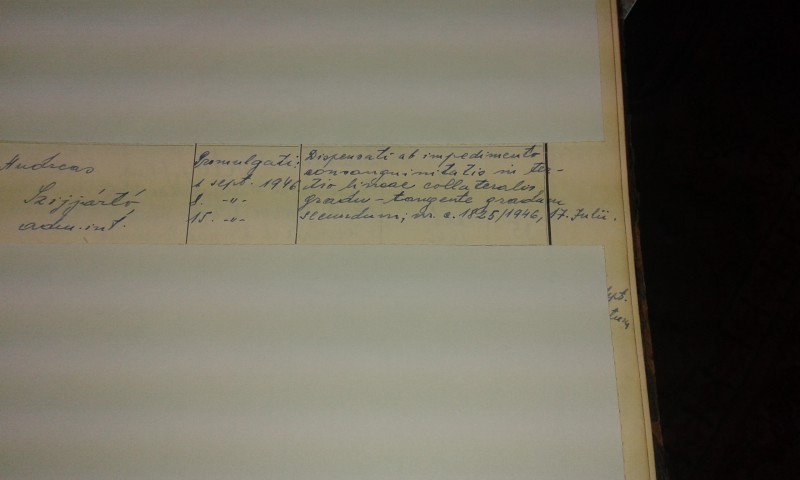 Andreas
Szijjártó
adm. int.
Promulgati:
1 sept. 1946
8. -"-
15. -"-
Dispensati ab impedimento
consanguinitatis in ter-
tio lineae collateralis
gradu - tangente gradum
secundum; nr. a. 1825/1946, 17. Julii.
sept.
tum